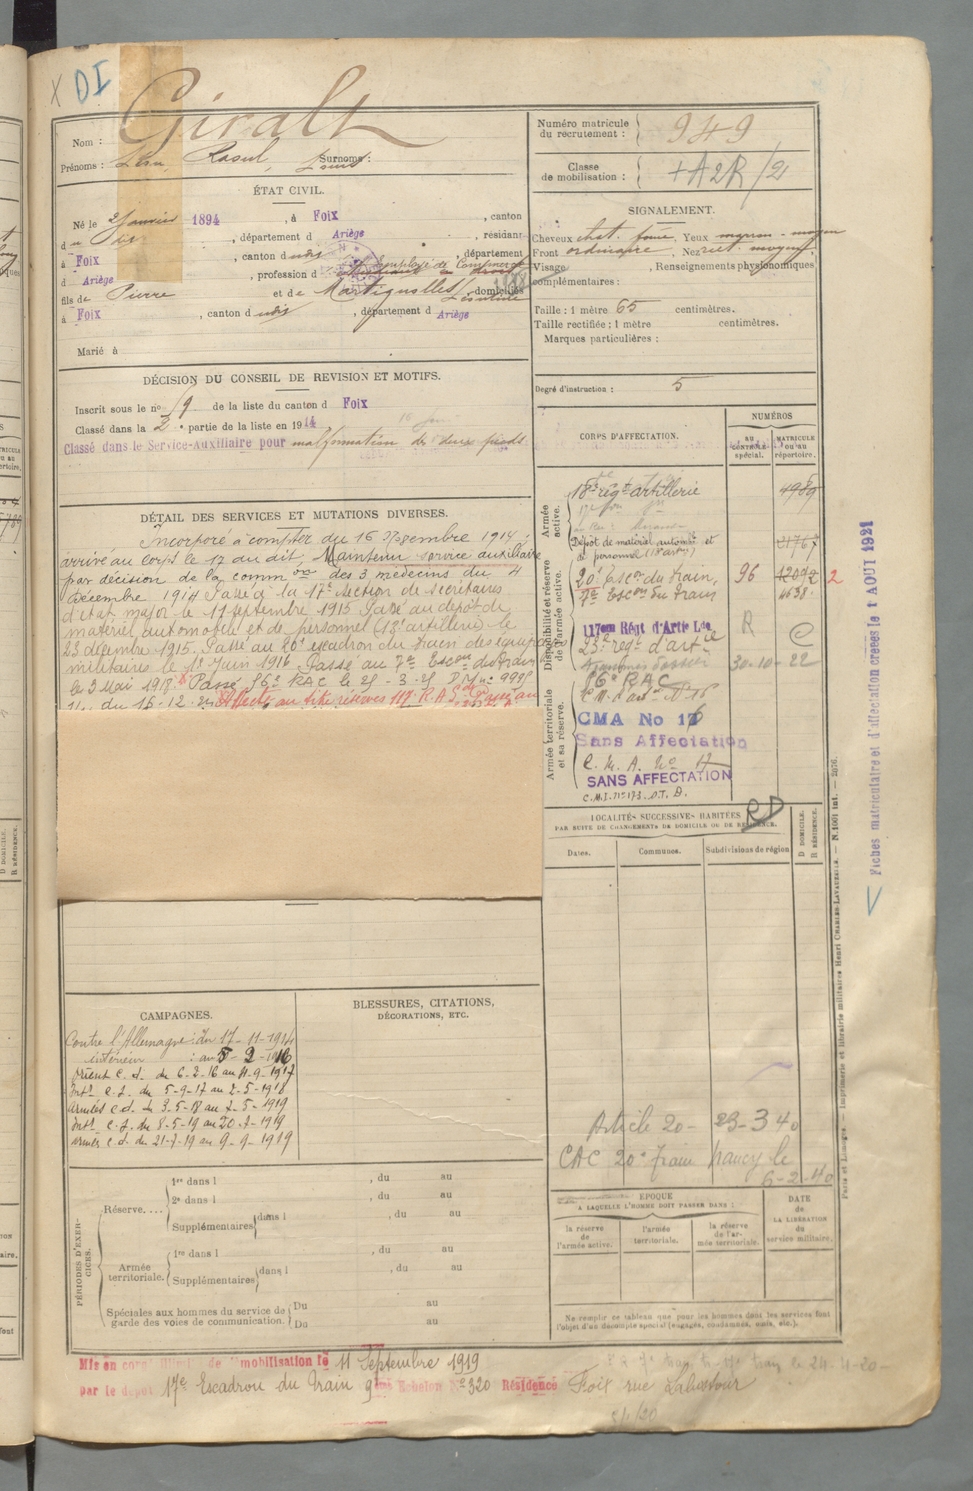 X DI
Nom : Giralt
Prénoms : Léon, Raoul, Louis Surnoms :
Numéro matricule du recrutement : 949
Classe de mobilisation : + A2R/2
ÉTAT CIVIL.
Né le 2 janvier 1894, à Foix, canton
du dit, département d Ariège, résidant
à Foix, canton dudit, département
d Ariège, profession d Employé de Commerce
fils de Pierre et de Martignolles domiciliés
à Foix, canton dudit, département d Ariège
Marié à
SIGNALEMENT.
Cheveux chat. foncé, Yeux marron - moyen
Front ordinaire, Nez rect. moyen
Visage , Renseignements physionomiques
complémentaires :
Taille : 1 mètre 65 centimètres.
Taille rectifiée : 1 mètre centimètres.
Marques particulières :
Degré d'instruction : 5
DÉCISION DU CONSEIL DE REVISION ET MOTIFS.
Inscrit sous le n° 19 de la liste du canton d Foix
Classé dans la 2e partie de la liste en 1914
Classé dans le Service-Auxiliaire pour malformation des deux pieds.
DÉTAIL DES SERVICES ET MUTATIONS DIVERSES.
Incorporé à compter du 16 Novembre 1914 ;
arrivé au corps le 17 du dit. Maintenu service auxiliaire
par décision de la common des 3 médecins du 4
décembre 1914 Passé à la 17e section de secrétaires
d'état major le 11 septembre 1915 Passé au dépôt de
matériel automobile et de personnel (18e artillerie) le
23 décembre 1915. Passé au 20e escadron du train des équipages
militaires le 1er Juin 1916. Passé au 7e Escon du train
le 3 Mai 1918. Passé 56e RAC le 25 - 3 - 25
du 15-12-2 Affecté au titre réserves 117e R.A.
CORPS D'AFFECTATION.
NUMÉROS
AU CONTRÔLE spécial.
MATRICULE ou au répertoire.
Armée active.
18e régt artillerie 4989
Disponibilité et réserve de l'armée active.
Dépôt de matériel automb. et
de personnel (18e arty)
20e Escon du train, 96 2
7e Escon du train 6538
117eme Régt d'Artie Lde R C
23e régt d'artie
30-10-22
56e RAC
Armée territoriale et sa réserve.
CMA No 16
Sans Affectation
C. M. A. No 17
SANS AFFECTATION
C.M.I. n° 173. D.T. D.
RD
LOCALITÉS SUCCESSIVES HABITÉES
PAR SUITE DE CHANGEMENTS DE DOMICILE OU DE RÉSIDENCE.
Dates. Communes. Subdivisions de région
D DOMICILE.
R RÉSIDENCE.
Article 20 - 23-3 40
CAC 20e train Nancy le
6-2-40
CAMPAGNES.
Contre l'Allemagne : du 17-11-1914
intérieur : au 5-2-1916
Orient c.d. du 6-2-16 au 4-9-1917
Intr c.s. du 5-9-17 au 2-5-1918
armées c.d. du 3-5-18 au 7-5-1919
Intr c.s. du 8-5-19 au 20-7-1919
armées c.d. du 21-7-19 au 9-9-1919
BLESSURES, CITATIONS,
DÉCORATIONS, ETC.
PÉRIODES D'EXERCICES.
Réserve....
1re dans l , du au
2e dans l , du au
Supplémentaires dans l , du au
Armée territoriale.
1re dans l , du au
Supplémentaires dans l , du au
Spéciales aux hommes du service de garde des voies de communication.
Du au
Du au
ÉPOQUE
A LAQUELLE L'HOMME DOIT PASSER DANS :
la réserve de l'armée active.
l'armée territoriale.
la réserve de l'armée territoriale.
DATE de LA LIBÉRATION du service militaire.
Ne remplir ce tableau que pour les hommes dont les services font
l'objet d'un décompte spécial (engagés, condamnés, omis, etc.).
Mis en congé illimité de démobilisation le 11 Septembre 1919
par le dépôt 17e Escadron du Train 9eme Echelon No 320 Résidence Foix rue Labistour
Fiches matriculaire et d'affectation créées le 1 AOUT 1921
Paris et Limoges. — Imprimerie et librairie militaires Henri CHARLES-LAVAUZELLE. — N. 1001 int. — 2976.